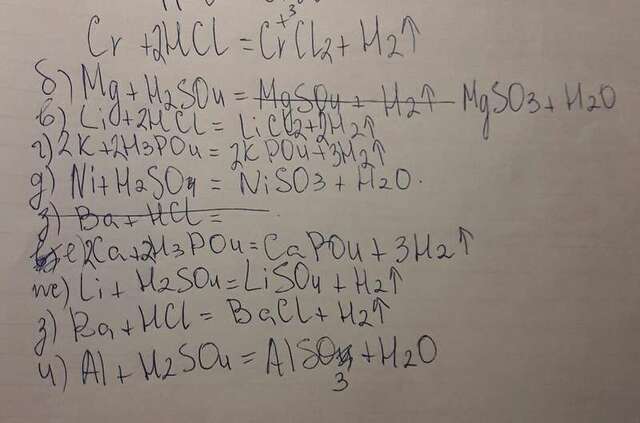 Cr +2HCl = Cr⁺³Cl2 + H2↑
б) Mg + H2SO4 = MgSO4 + H2↑ MgSO3 + H2O
в) Li0+2HCl = LiCl2+2H2↑
г) 2K+2H3PO4 = 2KPO4+3H2↑
д) Ni+H2SO4 = NiSO3 + H2O.
з) Ba + HCl =
е) 2Ca+2H3PO4=CaPO4 + 3H2↑
же) Li + H2SO4=LiSO4 + H2↑
з) Ba+HCl = BaCl + H2↑
и) Al + H2SO4 = AlSO3 + H2O